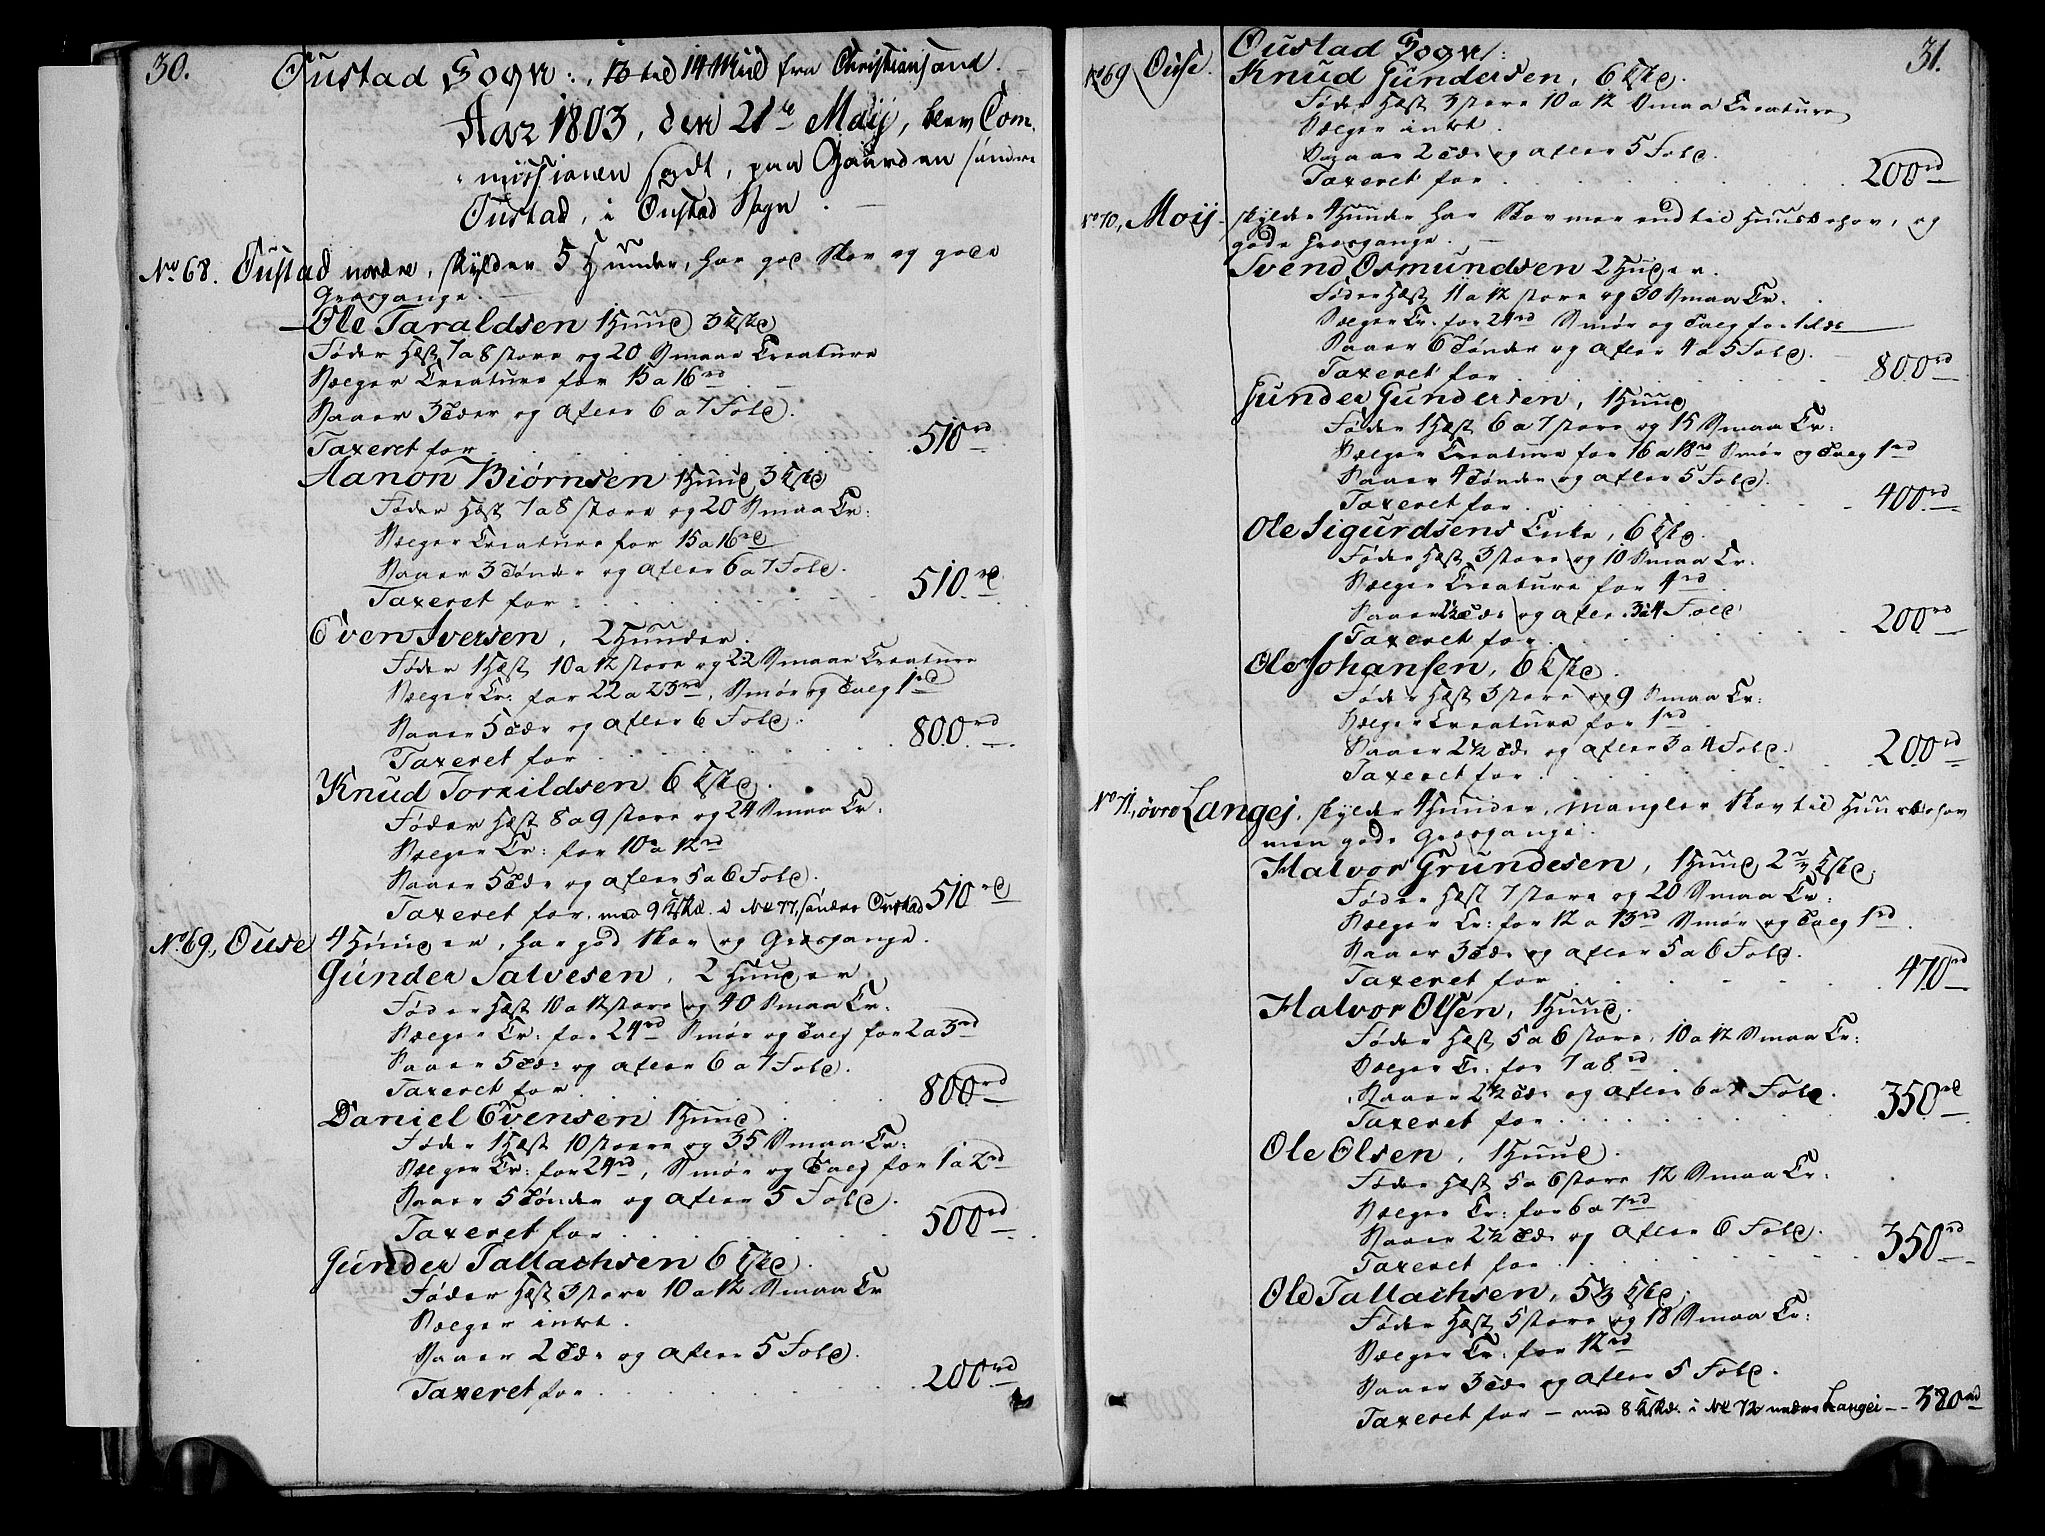 30.
Oustad Sogn: 13 til 14 Miil fra Christiansand.
Aar 1803, den 21de Maij, blev Com-
missionen satt, paa Gaarden søndre
Oustad, i Oustad Sogn.
No 68. Oustad nordre, skylder 5 Huuder, har god Skov og gode
Græsgange.
Ole Taraldsen 1 Huud 3 Kske
Føder Hæst 7 a 8 store og 20 Smaae Creature
Sælger Creature for 15 a 16 rd
Saaer 3 Tdr og afler 6 a 7 Fold.
Taxeret for 510 rd
Aanon Biørnsen 1 Huud 3 Kske
Føder Hæst 7 a 8 store og 20 Smaa Cr:
Sælger Creature for 15 a 16 rd
Saaer 3 Tønder og afler 6 a 7 Fold.
Taxeret for 510 rd
Even Iversen, 2 Huuder.
Føder 1 Hæst 10 a 12 store og 22 Smaae Creature
Sælger Cr: for 22 a 23 rd, Smør og Talg 1 rd
Saaer 5 Tdr og afler 6 Fold.
Taxeret for 800 rd
Knud Torkildsen 6 Kske.
Føder Hæst 8 a 9 store og 24 Smaa Cr:
Sælger Cr: for 10 a 12 rd
Saaer 5 Tdr og afler 5 a 6 Fold.
Taxeret for, med 9 Kskd. i No 77, søndre Oustad 510 rd
No 69, Ouse 4 Huuder, har god Skov og Græsgange.
Gunder Salvesen, 2 Huuder
Føder Hæst 10 a 12 store og 40 Smaa Cr:
Sælger Cr: for 24 rd Smør og Talg for 2 a 3 rd
Saaer 5 Tdr og afler 6 a 7 Fold.
Taxeret for 800 rd
Daniel Evensen 1 Huud
Føder 1 Hæst 10 store og 35 Smaa Cr:
Sælger Cr: for 24 rd, Smør og Talg for 1 a 2 rd
Saaer 5 Tønder og afler 5 Fold.
Taxeret for 500 rd
Gunder Tallachsen 6 Kske.
Føder Hæst 3 store 10 a 12 Smaa Cr
Sælger intet.
Saaer 2 Tdr og afler 5 Fold.
Taxeret for 200 rd
31.
Oustad Sogn:
No 69 Ouse.
Knud Gundersen, 6 Kske.
Føder Hæst 3 store 10 a 12 Smaa Creature
Sælger intet.
Saaer 2 Tdr og afler 5 Fold.
Taxeret for 200 rd
No 70, Moij skylder 4 Huuder har Skov mer end til Huusbehov, og
gode Græsgange.
Svend Osmundsen 2 Huder.
Føder Hæst 11 a 12 store og 30 Smaa Cr.
Sælger Cr: for 24 rd Smør og Talg for
Saaer 6 Tønder og afler 4 a 5 Fold.
Taxeret for 800 rd
Gunder Gundersen, 1 Huud
Føder 1 Hæst 6 a 7 store og 15 Smaa Cr:
Sælger Creature for 16 a 18 rd Smør og Talg 1 rd
Saaer 4 Tønder og afler 5 Fold.
Taxeret for 400 rd
Ole Sigurdsens Enke, 6 Kske.
Føder Hæst 3 store og 10 Smaa Cr.
Sælger Creature for 4 rd
Saaer 2½ Tdr og afler 3 a 4 Fold
Taxeret for 200 rd
Ole Johansen, 6 Kske.
Føder Hæst 3 store og 9 Smaa Cr:
Sælger Creature for 1 rd
Saaer 2½ Tdr og afler 3 a 4 Fold.
Taxeret for 200 rd
No 71, øvre Langej, skylder 4 Huuder, mangler Skov til Huusbehov
men gode Græsgange.
Halvor Grundesen, 1 Huud 2⅔ Kske
Føder Hæst 7 store og 20 Smaa Cr:
Sælger Cr: for 12 a 13 rd Smør og Talg 1 rd
Saaer 3 Tdr og afler 5 a 6 Fold.
Taxeret for 470 rd
Halvor Olsen, 1 Huud.
Føder Hæst 5 a 6 store, 10 a 12 Smaa Cr:
Sælger Cr: for 7 a 8 rd
Saaer 2½ Tdr og afler 6 a 7 Fold.
Taxeret for 350 rd
Ole Olsen, 1 Huud.
Føder Hæst 5 a 6 store 12 Smaa Cr:
Sælger Cr: for 6 a 7 rd
Saaer 2½ Tdr og afler 6 Fold.
Taxeret for 350 rd
Ole Tallachsen, 5⅓ Kske.
Føder Hæst 5 store og 18 Smaa Cr:
Sælger Cr: for 12 rd
Saaer 3 Tdr og afler 5 Fold.
Taxeret for – med 8 Kskd. i No 72 nedre Langei – 320 rd